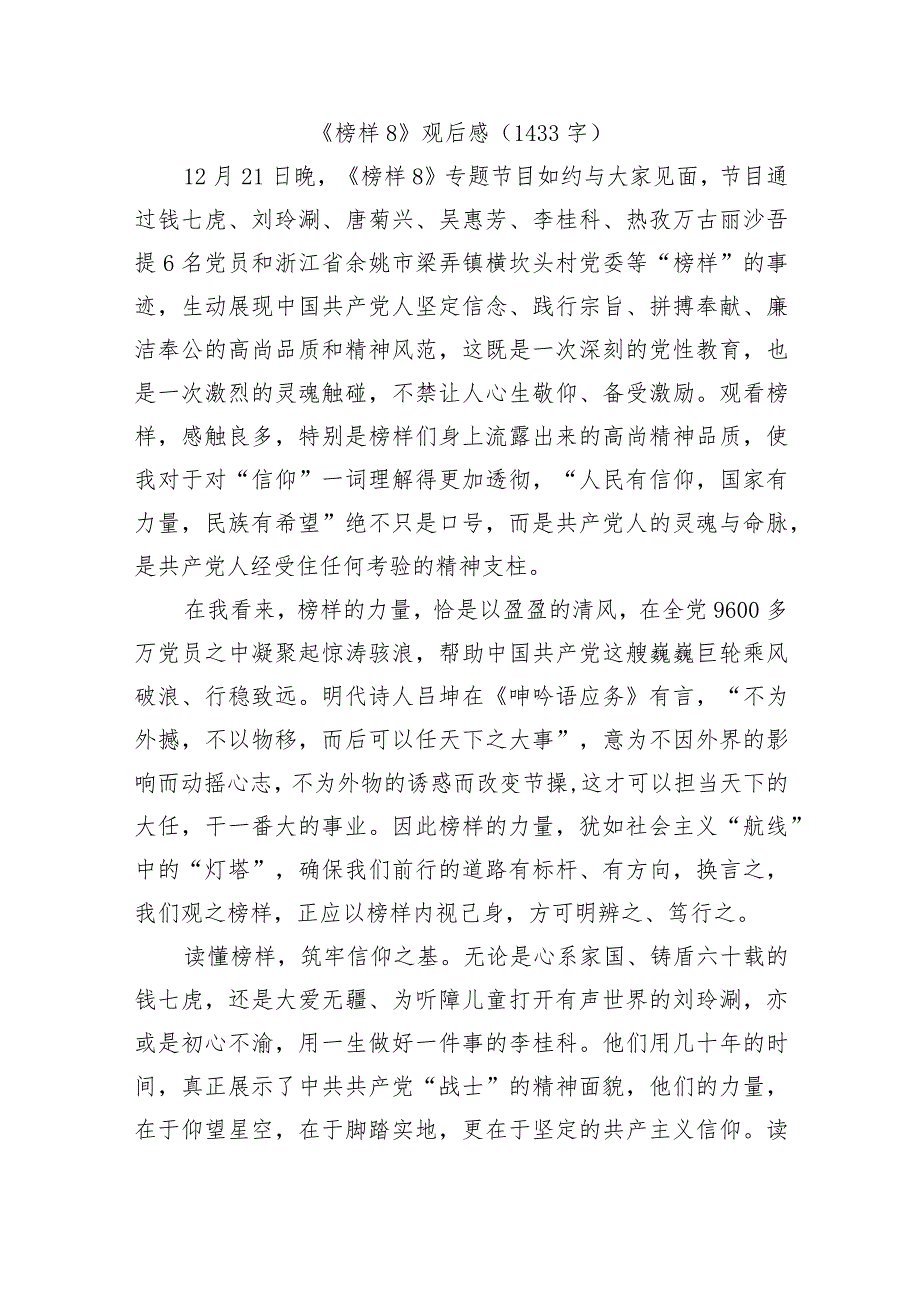 《榜样8》观后感（1433字）
12月21日晚，《榜样8》专题节目如约与大家见面，节目通
过钱七虎、刘玲涮、唐菊兴、吴惠芳、李桂科、热孜万古丽沙吾
提6名党员和浙江省余姚市梁弄镇横坎头村党委等“榜样”的事
迹，生动展现中国共产党人坚定信念、践行宗旨、拼搏奉献、廉
洁奉公的高尚品质和精神风范，这既是一次深刻的党性教育，也
是一次激烈的灵魂触碰，不禁让人心生敬仰、备受激励。观看榜
样，感触良多，特别是榜样们身上流露出来的高尚精神品质，使
我对于对“信仰”一词理解得更加透彻，“人民有信仰，国家有
力量，民族有希望”绝不只是口号，而是共产党人的灵魂与命脉，
是共产党人经受住任何考验的精神支柱。
在我看来，榜样的力量，恰是以盈盈的清风，在全党9600多
万党员之中凝聚起惊涛骇浪，帮助中国共产党这艘巍巍巨轮乘风
破浪、行稳致远。明代诗人吕坤在《呻吟语应务》有言，“不为
外撼，不以物移，而后可以任天下之大事”，意为不因外界的影
响而动摇心志，不为外物的诱惑而改变节操,这才可以担当天下的
大任，干一番大的事业。因此榜样的力量，犹如社会主义“航线”
中的“灯塔”，确保我们前行的道路有标杆、有方向，换言之，
我们观之榜样，正应以榜样内视己身，方可明辨之、笃行之。
读懂榜样，筑牢信仰之基。无论是心系家国、铸盾六十载的
钱七虎，还是大爱无疆、为听障儿童打开有声世界的刘玲涮，亦
或是初心不渝，用一生做好一件事的李桂科。他们用几十年的时
间，真正展示了中共共产党“战士”的精神面貌，他们的力量，
在于仰望星空，在于脚踏实地，更在于坚定的共产主义信仰。读